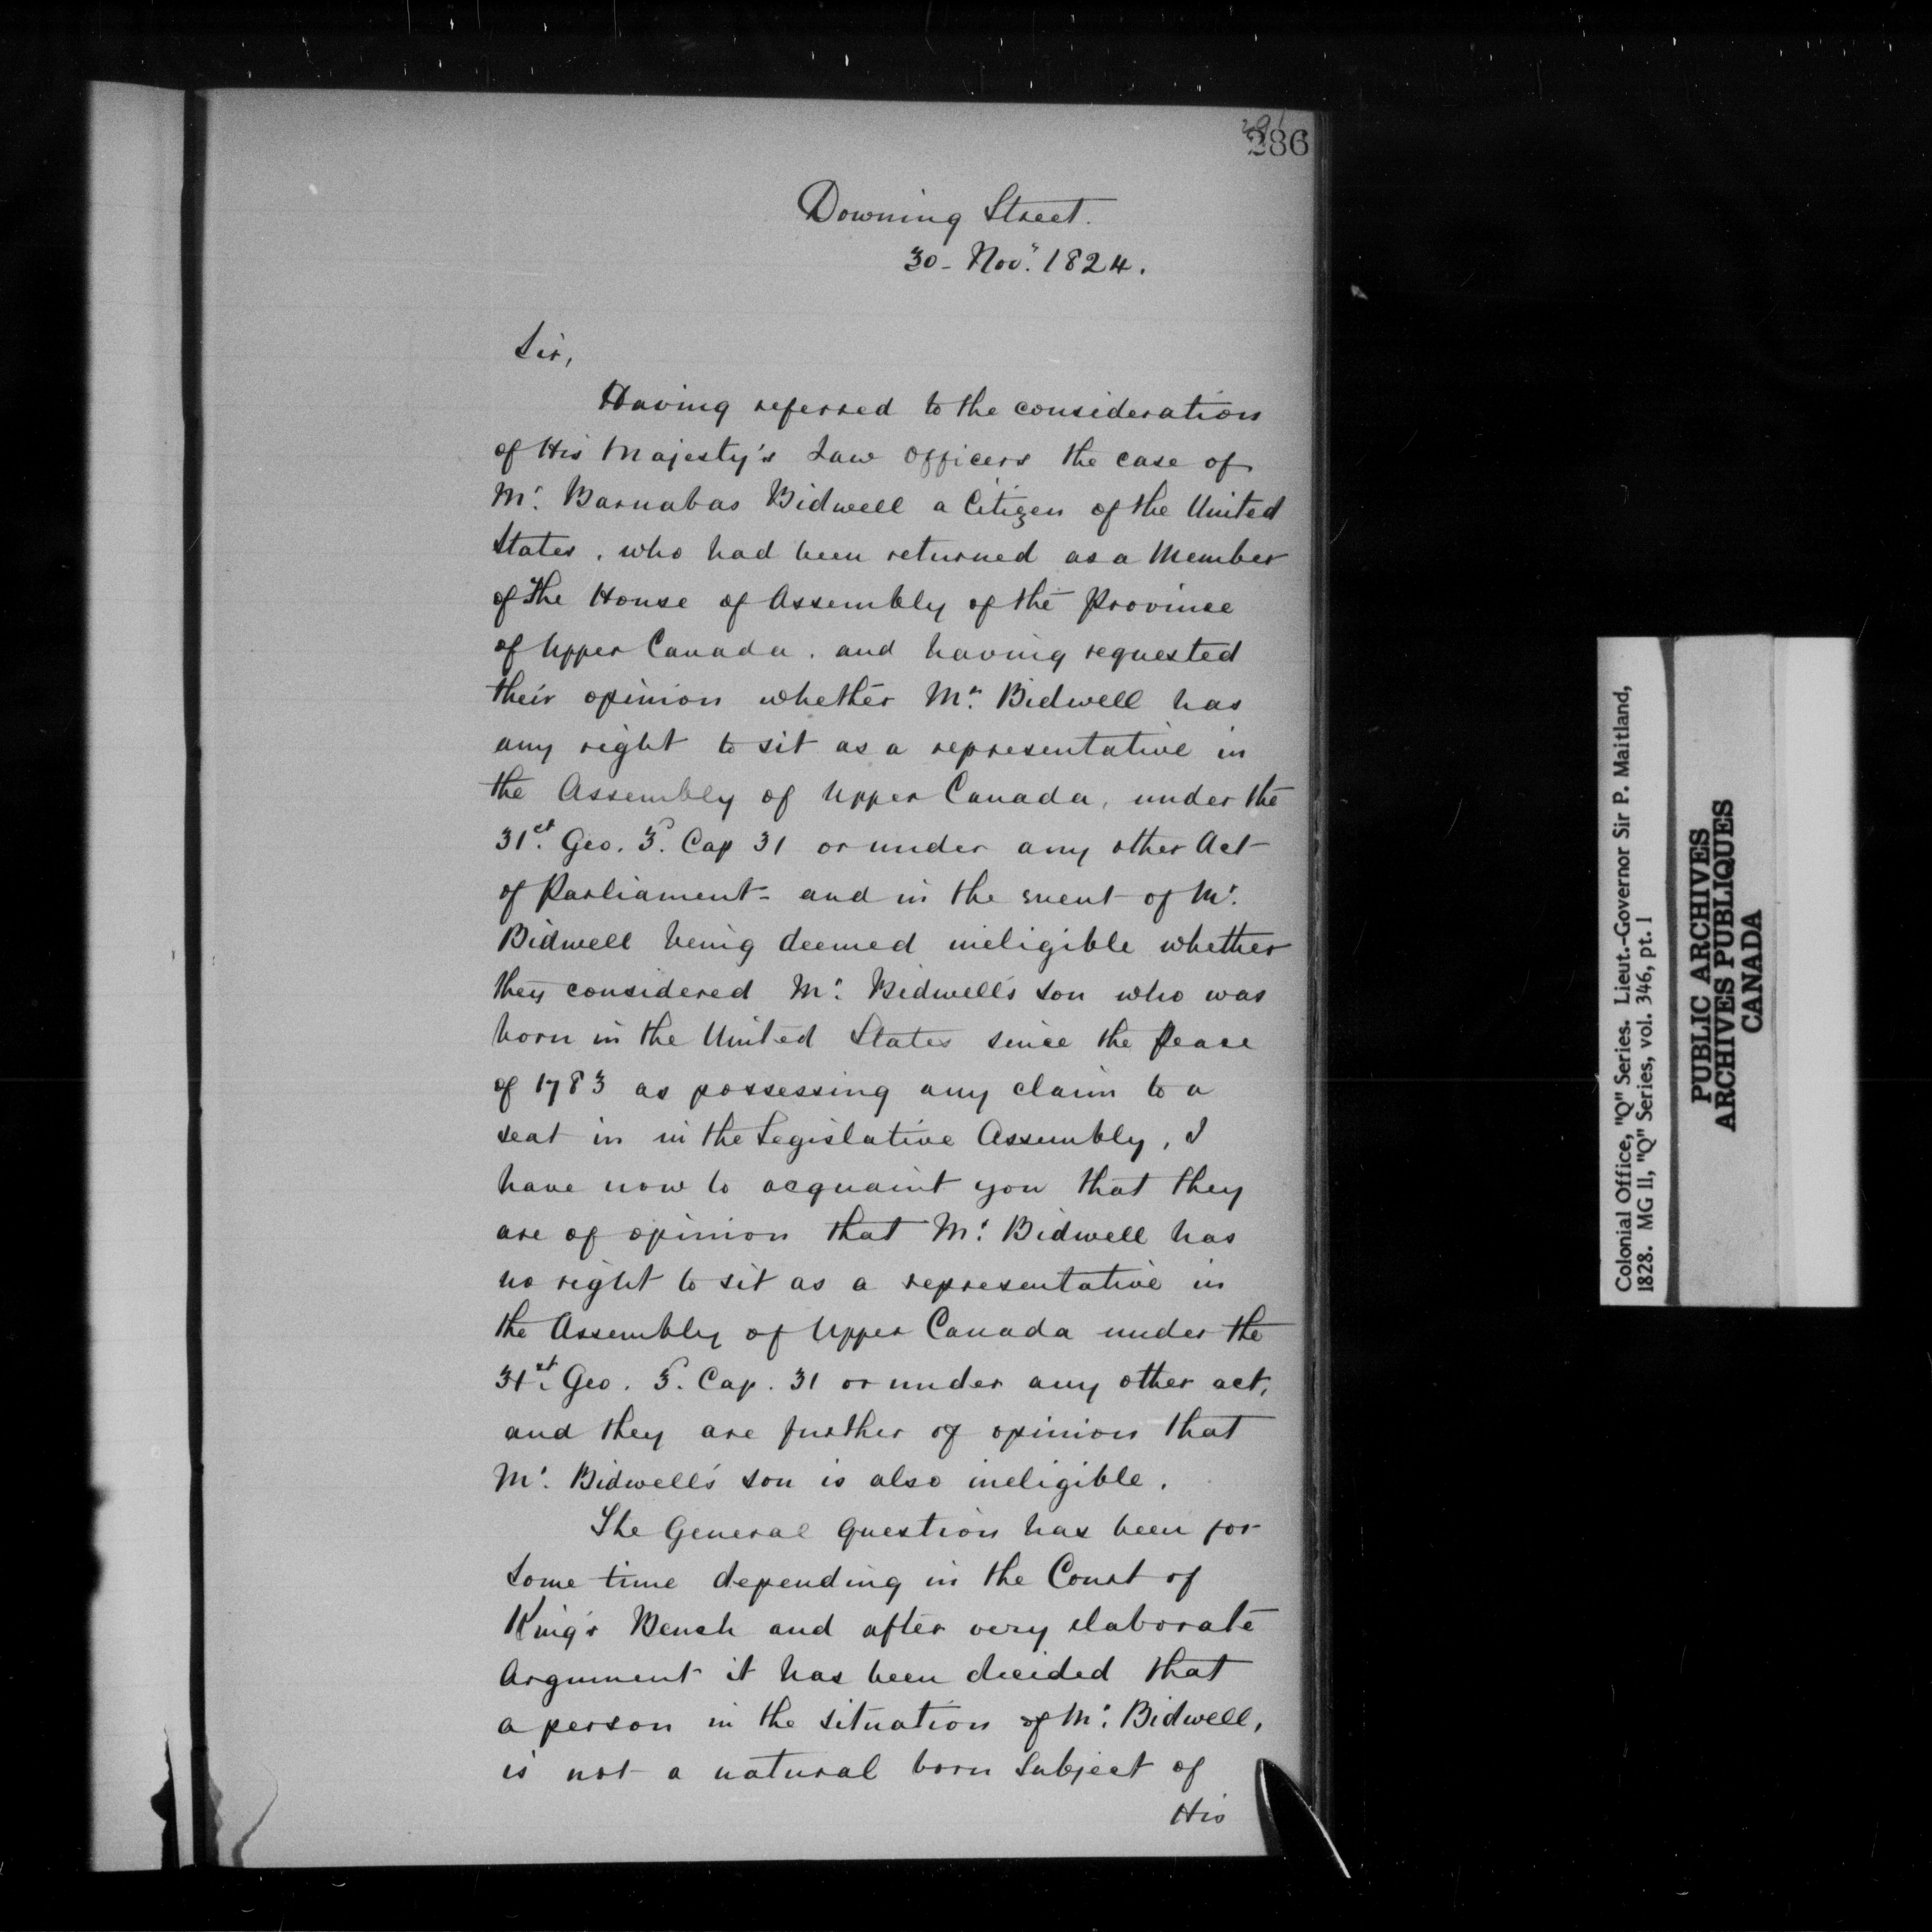 286
Downing Street.
30 - Novr. 1824.
Sir,
Having referred to the consideration
of His Majesty's Law Officers the case of
Mr. Barnabas Bidwell a Citizen of the United
States, who had been returned as a Member
of the House of Assembly of the Province
of Upper Canada, and having requested
their opinion whether Mr. Bidwell has
any right to sit as a representative in
the Assembly of Upper Canada, under the
31st. Geo. 3. Cap 31 or under any other Act
of Parliament - and in the event of Mr.
Bidwell being deemed ineligible whether
they considered Mr. Bidwell's son who was
born in the United States since the Peace
of 1783 as possessing any claim to a
seat in in the Legislative Assembly, I
have now to acquaint you that they
are of opinion that Mr. Bidwell has
no right to sit as a representative in
the Assembly of Upper Canada under the
31st. Geo. 3. Cap. 31 or under any other act,
and they are further of opinion that
Mr. Bidwell's son is also ineligible.
The General question has been for
some time depending in the Court of
King's Bench and after very elaborate
Argument it has been decided that
a person in the situation of Mr. Bidwell,
is not a natural born Subject of
His
Colonial Office, "Q" Series. Lieut.-Governor Sir P. Maitland,
1828. MG 11, "Q" Series, vol. 346, pt. 1
PUBLIC ARCHIVES
ARCHIVES PUBLIQUES
CANADA